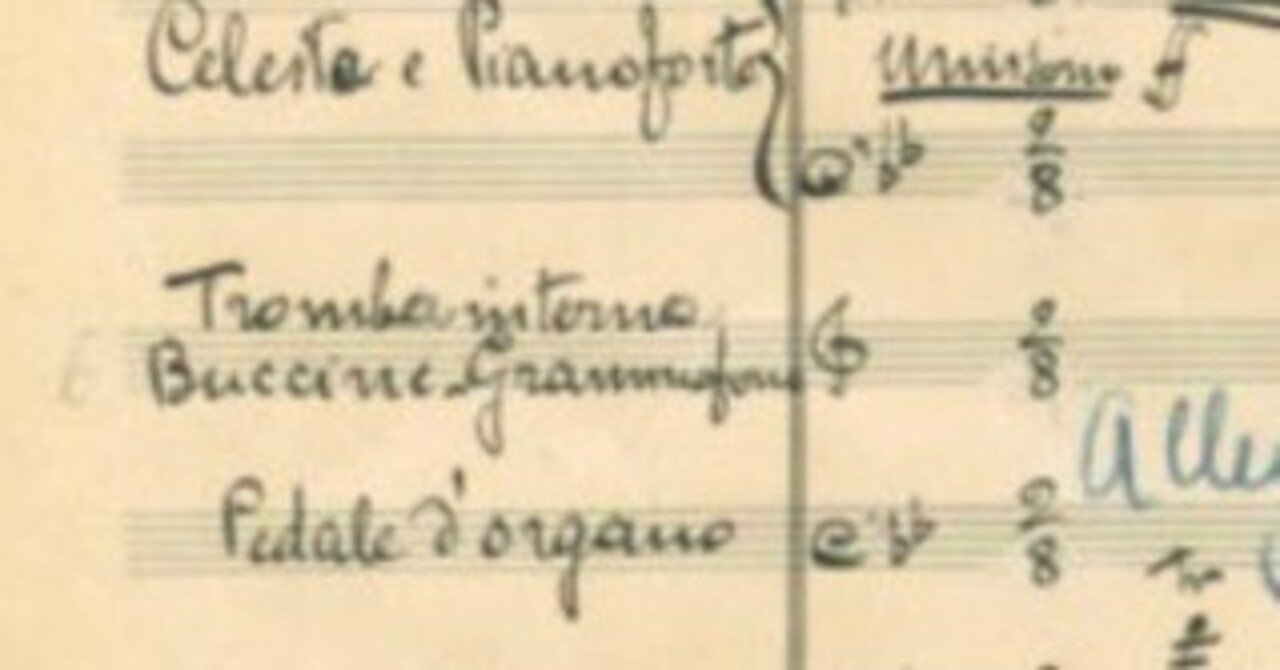 Celesta e Pianoforte
Unissono
Tromba interna
Buccine-Grammofono
Alle
Pedale d'organo
8
8
8